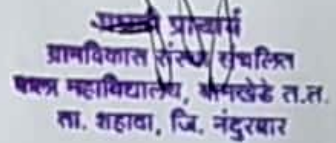 प्राचार्य
ग्रामविकास संस्था संचलित
कला महाविद्यालय, बामखेडे त.त.
ता. शहादा, जि. नंदुरबार